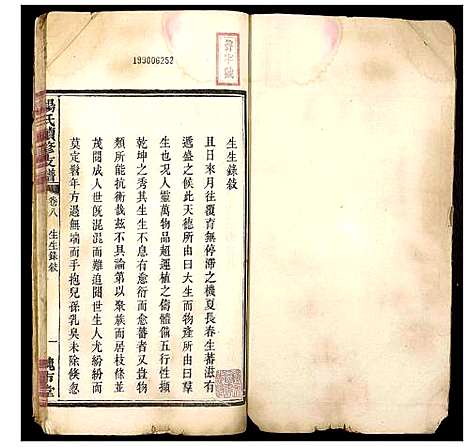 生生錄敘
且日來月往覆育無停滯之機夏長春生蕃滋有
遞盛之候此天德所由曰大生而物產所由曰羣
生也況人靈萬物品超運植之儔體備五行性擷
乾坤之秀其生生而愈衍而愈蕃者又豈貴物
類所能抗衡哉茲不具論第以聚族而居枝條並
茂閱成人世旣混混而難追閱世生人尤紛紛而
莫定數年方為無端而手抱兒孫乳臭未除倏忽
楊氏續修支譜
卷八
生生錄敘
一
193006252